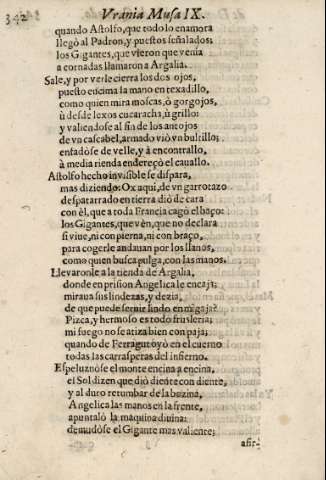 342
Vrania Musa IX.
quando Astolfo, que todo lo enamora
llegò al Padron, y puestos señalados:
los Gigantes, que vieron que venia
a cornadas llamaron a Argalia.
Sale, y por verle cierra los dos ojos,
puesto encima la mano en texadillo,
como quien mira moscas, ò gorgojos,
ù desde lexos cucaracha, ù grillo:
y valiendose al fin de los antojos
de vn cascabel, armado viò vn bultillo:
enfadóse de velle, y à encontrallo,
à media rienda endereçò el cauallo.
Astolfo hecho inuisible se dispara,
mas diziendo: Ox aqui, de vn garrotazo
despatarrado en tierra diò de cara
con èl, que a toda Francia cagò el baço:
los Gigantes, que vèn, que no declara
si viue, ni con pierna, ni con braço,
para cogerle andauan por los llanos,
como quien busca pulga, con las manos.
Lleuaronle a la tienda de Argalia,
donde en prision Angelica le encaja:
miraua sus lindezas, y dezia,
de que puede seruir lindo en migaja?
Pizca, y hermoso es todo frusleria;
mi fuego no se atiza bien con paja;
quando de Ferragut oyò en el cuerno
todas las carrasperas del infierno.
Espeluznòse el monte encina a encina,
el Sol dizen que diò diente con diente,
y al duro retumbar de la bozina,
Angelica las manos en la frente,
apuntalò la maquina diuina:
demudòse el Gigante mas valiente;
asir-